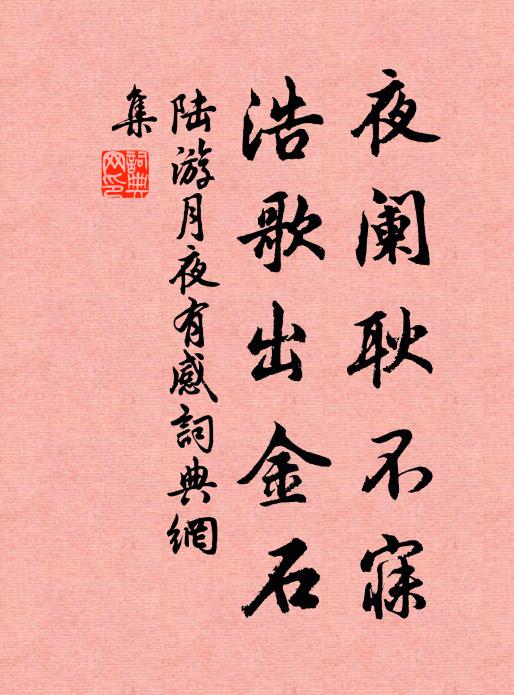 夜阑耿不寐
浩歌出金石
陆游月夜有感詞典網
集
詞典網印